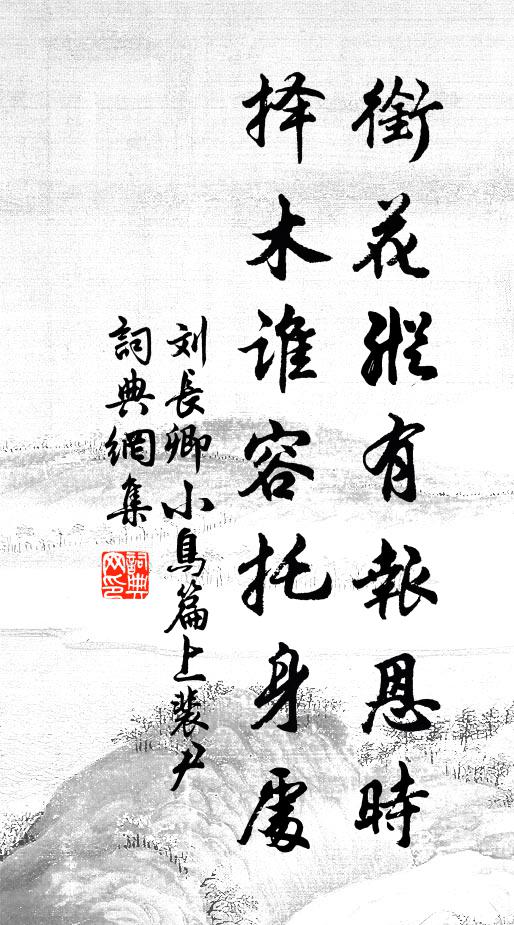 銜花縱有報恩時
择木谁容托身處
刘長卿小鳥篇上裴尹
詞典網集
詞典网印